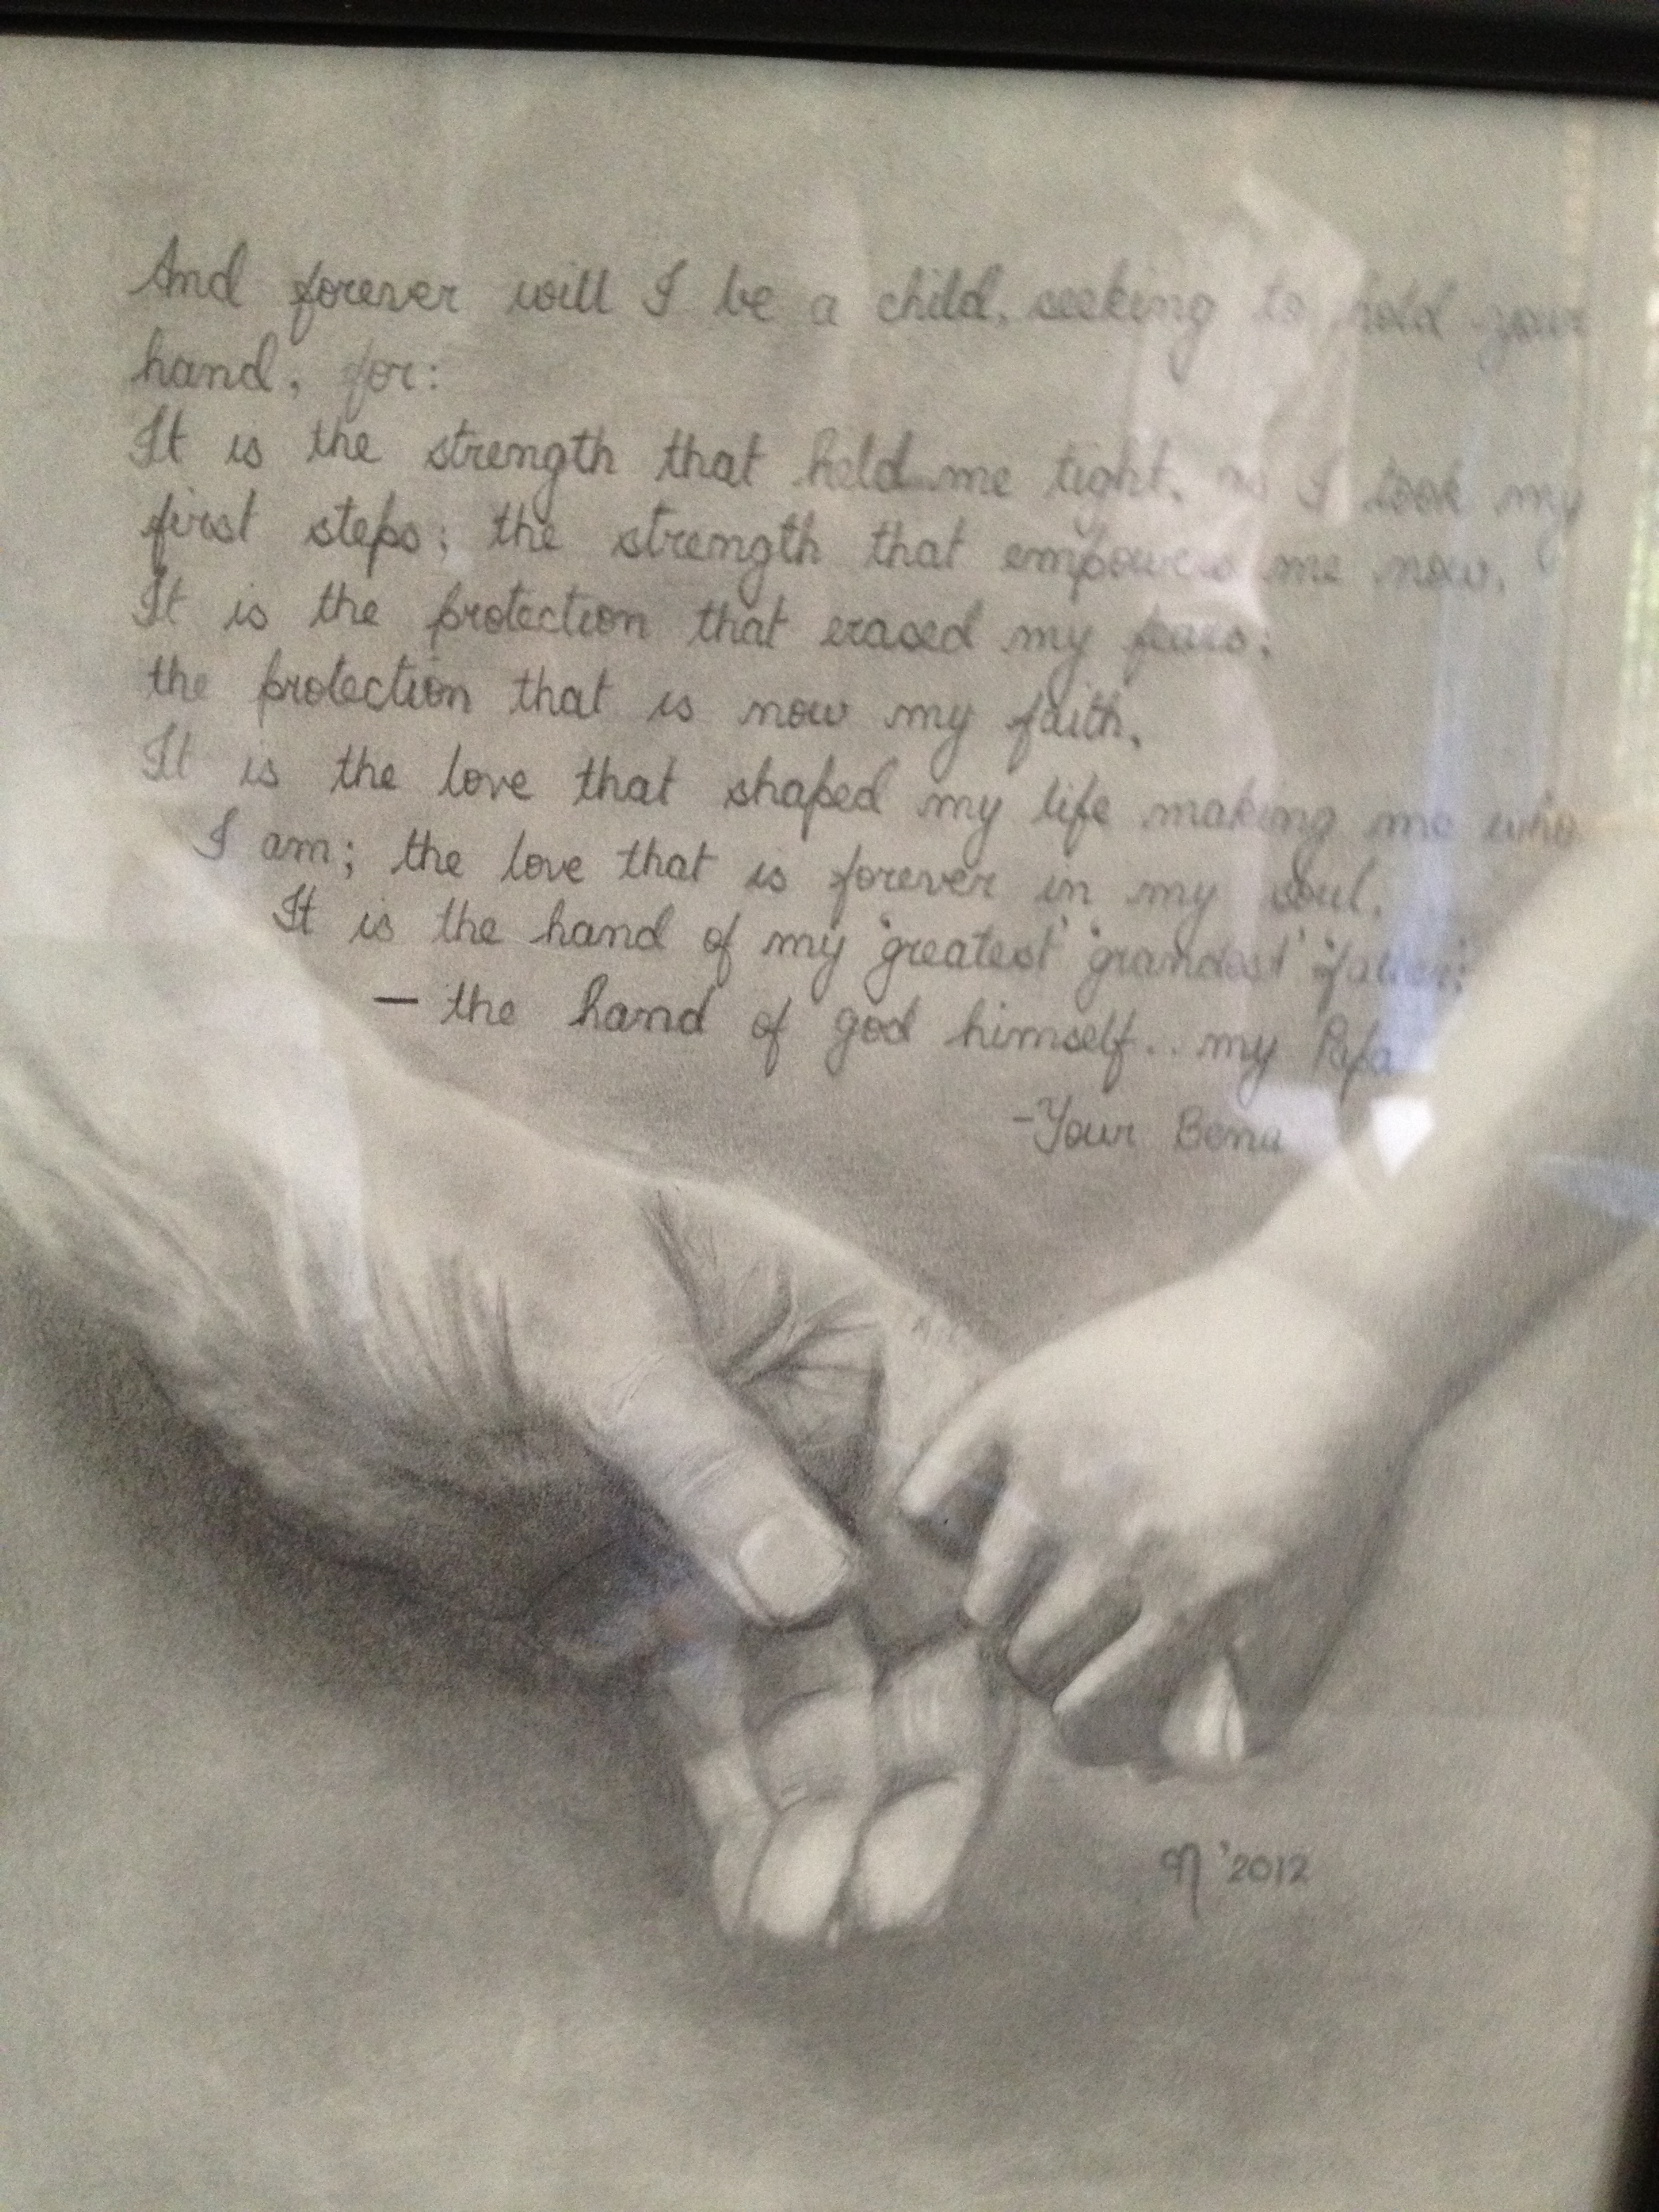 And forever will I be a child, seeking to hold your
hand, for:
It is the strength that held me tight, as I took my
first steps; the strength that empowers me now.
It is the protection that erased my fears;
the protection that is now my faith.
It is the love that shaped my life making me who
I am; the love that is forever in my soul.
It is the hand of my 'greatest' 'grandest' 'father':
— the hand of god himself.. my Papa
-Your Benu
'2012